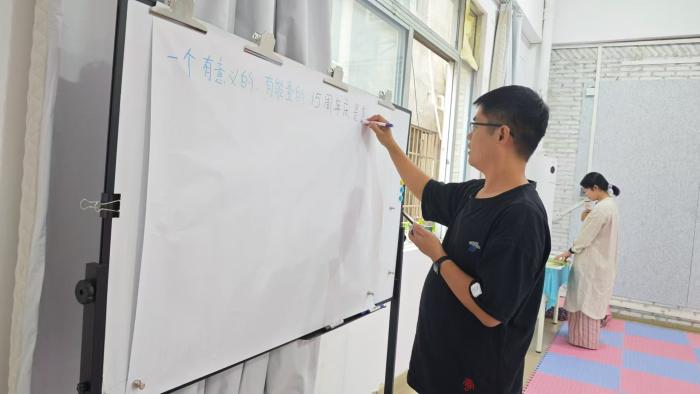 一个有意义的、有能量的15周年庆是